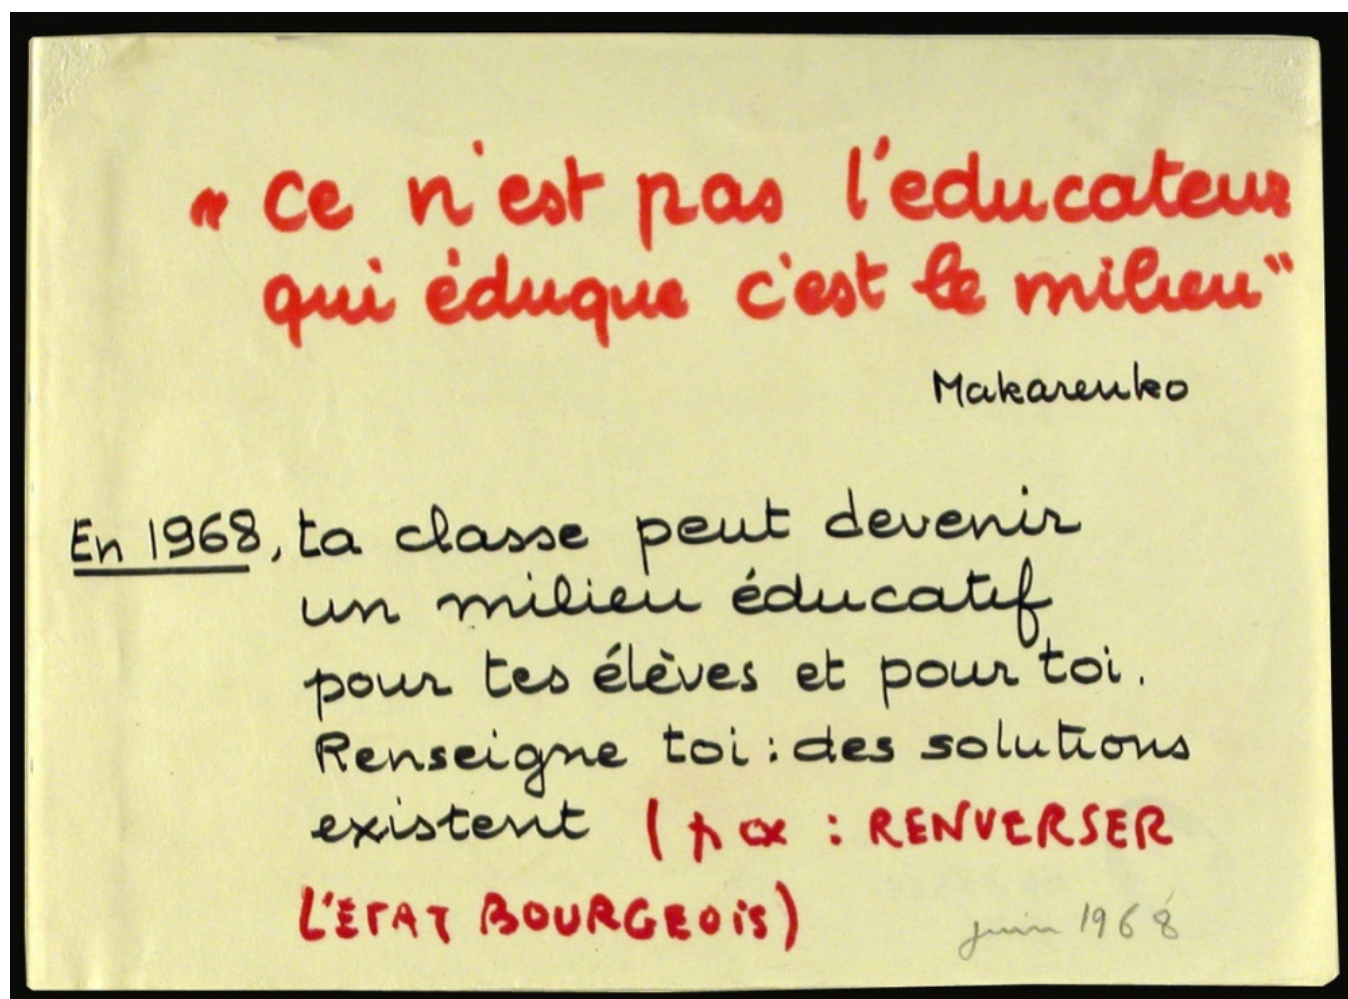 " Ce n'est pas l'educateur
qui éduque c'est le milieu "
Makarenko
En 1968, ta classe peut devenir
un milieu éducatif
pour tes élèves et pour toi.
Renseigne toi : des solutions
existent ( p ex : RENVERSER
L'ÉTAT BOURGEOIS)
juin 1968